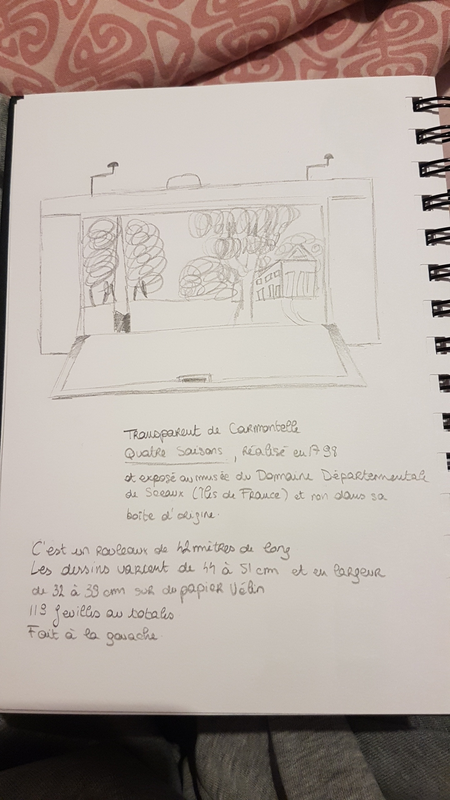 Transparent de Carmontelle
Quatre Saisons, réalisé en 1798
et exposé au musée du Domaine Départementale
de Sceaux (Iles de France) et non dans sa
boîte d'origine.
C'est un rouleaux de 42 mètres de long
Les dessins varient de 44 à 51 cm et en largeur
de 32 à 39 cm sur du papier Vélin
119 feuilles au totales
Fait à la gouache.